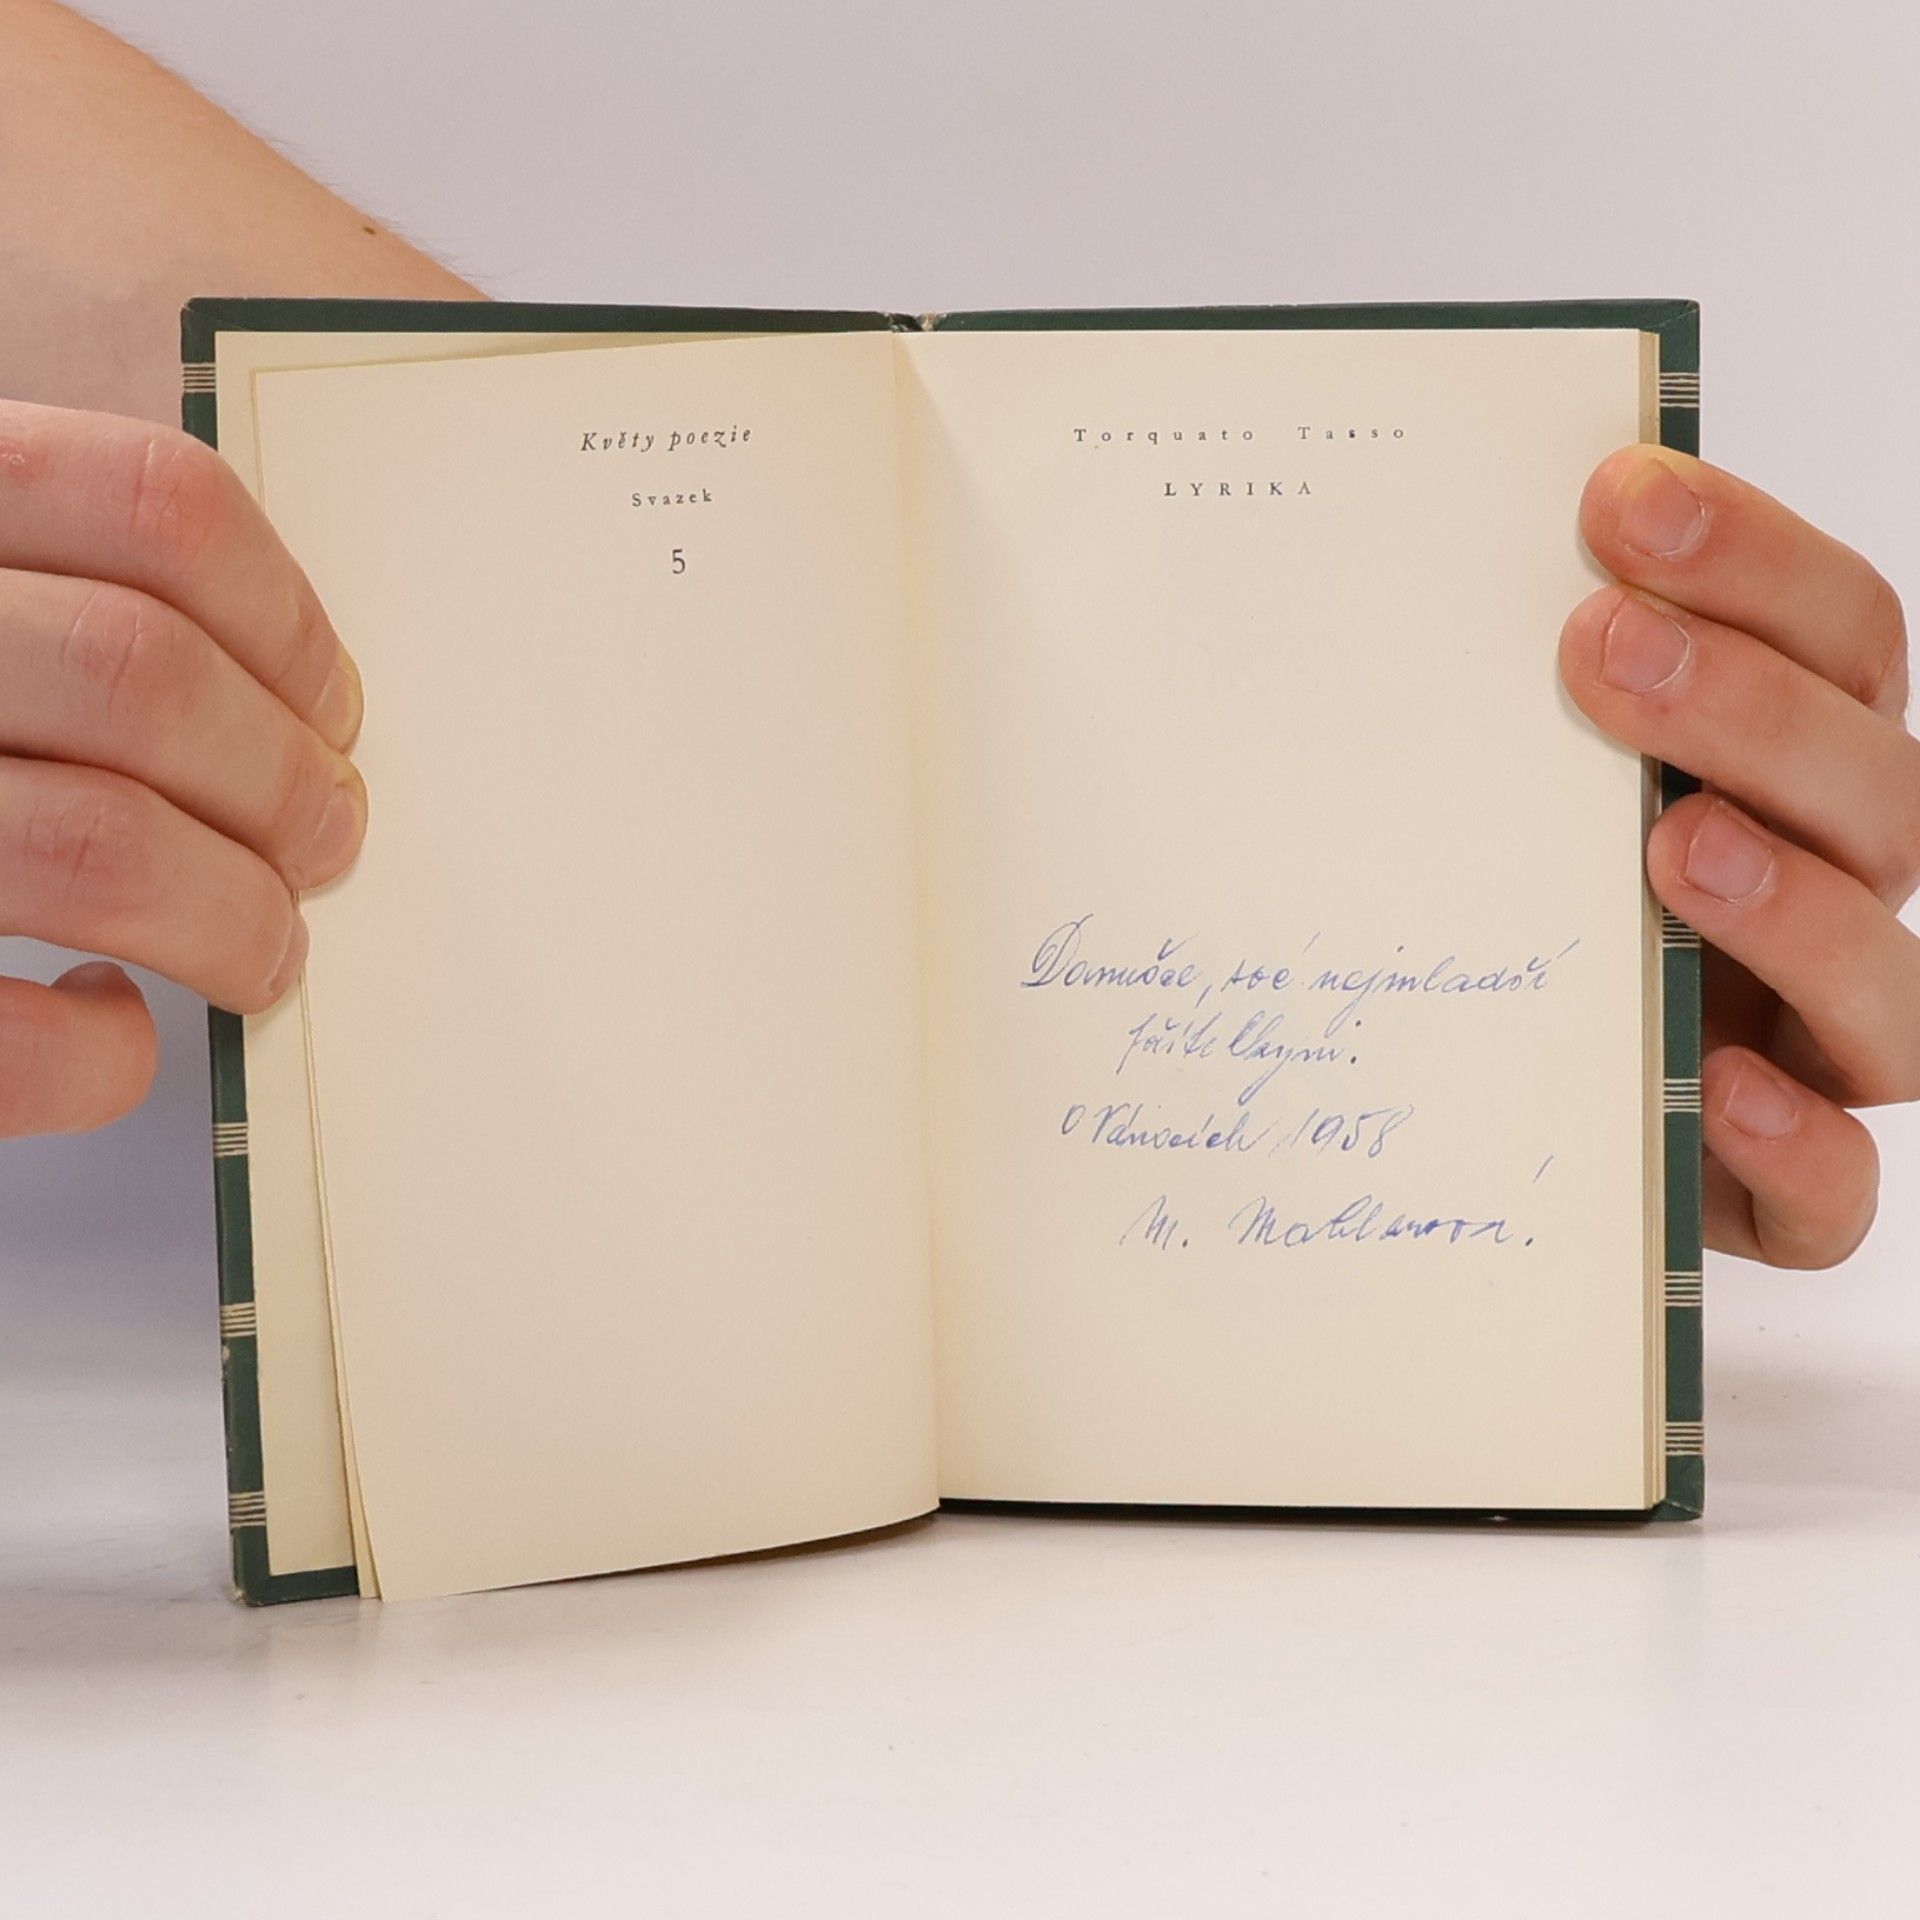 Květy poezie
Svazek
5
Torquato Tasso
LYRIKA
Danušce, své nejmladší
přítelkyni.
O Vánocích 1958
M. Mahlerová.